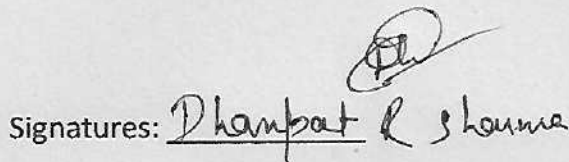 Signatures: Dhanpat R Sharma